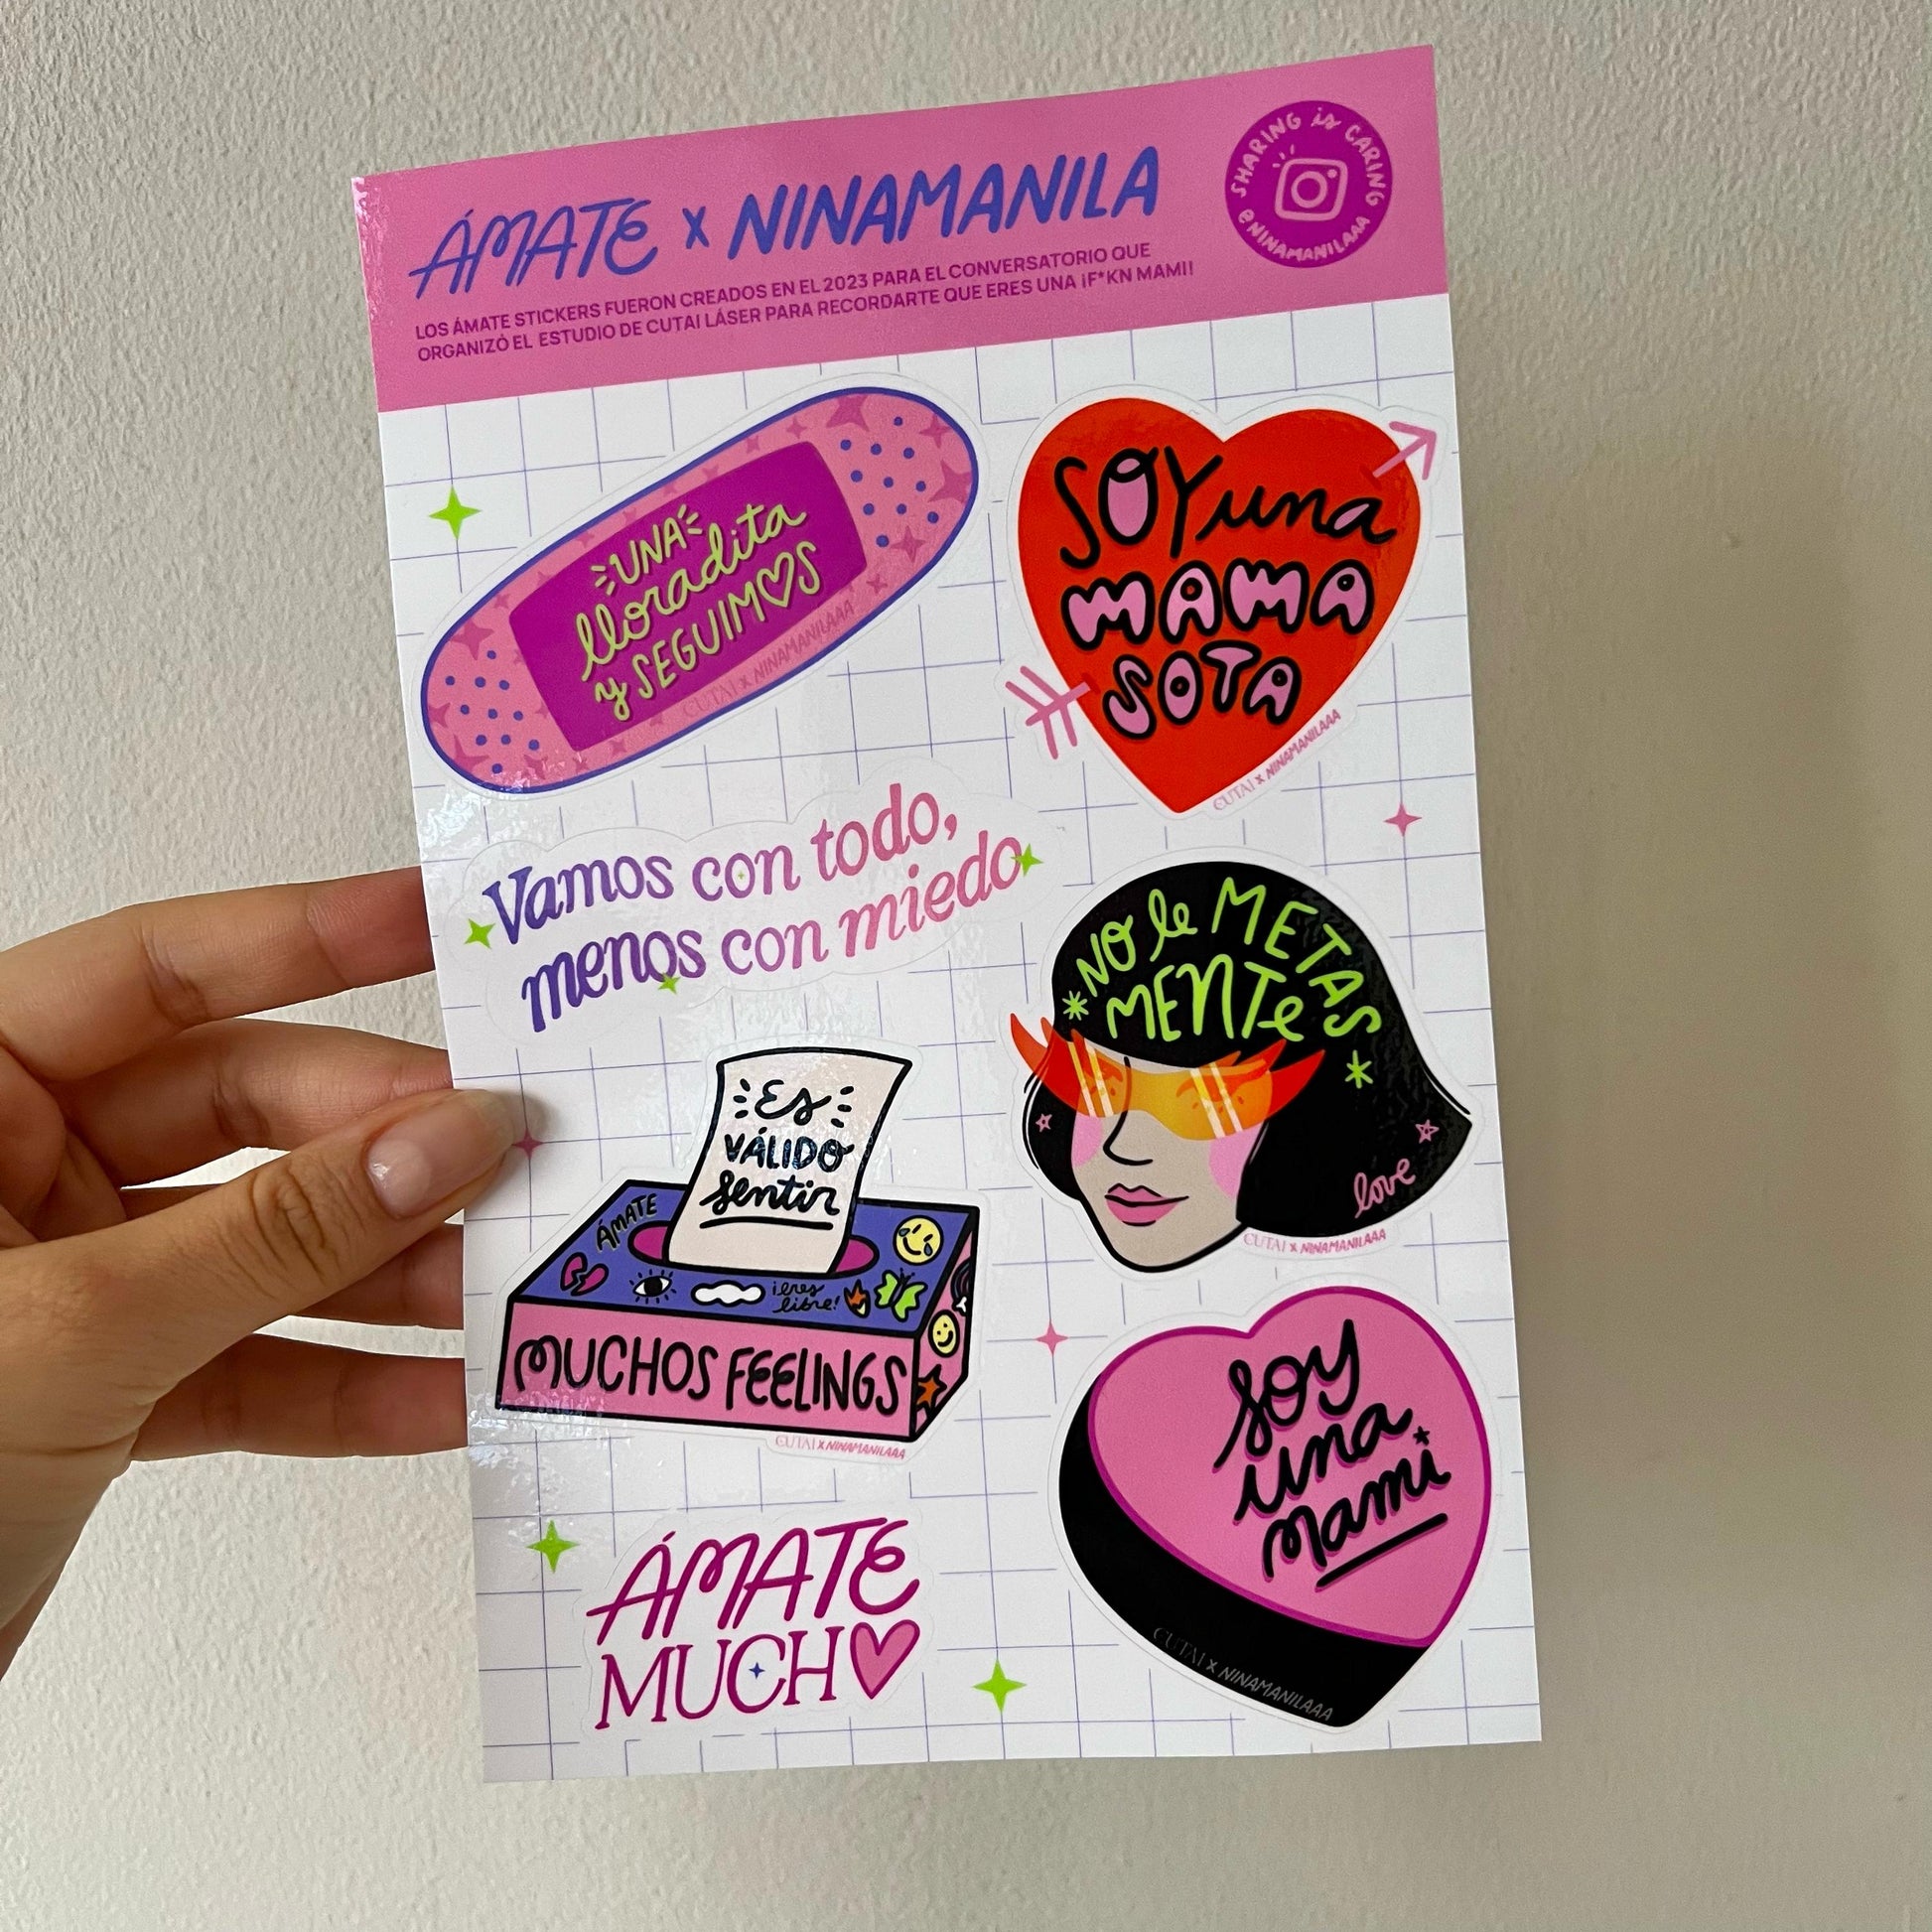 ÁMATE x NINAMANILA
LOS ÁMATE STICKERS FUERON CREADOS EN EL 2023 PARA EL CONVERSATORIO QUE
ORGANIZÓ EL ESTUDIO DE CUTAI LÁSER PARA RECORDARTE QUE ERES UNA ¡F*KN MAMI!
SHARING is CARING
@NINAMANILAAA
UNA
lloradita
y SEGUIMOS
CUTAI x NINAMANILAAA
SOY una
MAMA
SOTA
CUTAI x NINAMANILAAA
Vamos con todo,
menos con miedo
NO le METAS
MENTe
love
CUTAI x NINAMANILAAA
Es
VÁLIDO
sentir
ÁMATE
¡eres
libre!
MUCHOS FEELINGS
CUTAI x NINAMANILAAA
soy
una
mami
CUTAI x NINAMANILAAA
ÁMATE
MUCHO